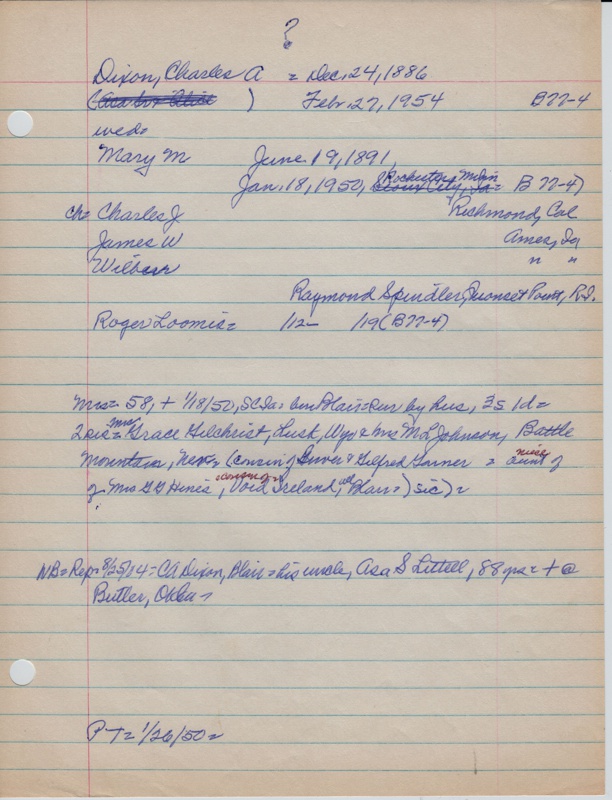 ?
Dixon, Charles A = Dec. 24, 1886
(Asa Sr + Alice) Feb. 27, 1954 B77-4
wed=
Mary M June 19, 1891
Jan. 18, 1950, Rochester, Minn
Sioux City, Ia= B 77-4)
ch= Charles J Richmond, Cal
James W Ames, Ia
Wilbur " "
Raymond Spindler, Quonset Point, R.I.
Roger Loomis= /12- /19 (B77-4)
Mrs= 58, + 1/18/50, SC Ia= bur Blair= sur by hus, 3s 1d=
2 sis= Mrs Grace Gilchrist, Lusk, Wyo & Mrs M L Johnson, Battle
Mountain, Nev= (cousin of Guver & Gilfred Garner = niece aunt of
of Mrs G G Hines, cousin of= Void Ireland, all Blair=) sic) =
NB= Rep= 8/25/14= CA Dixon, Blair= his uncle, Asa S Littell, 88 yrs= + @
Butler, Okla=
P T= 1/26/50=